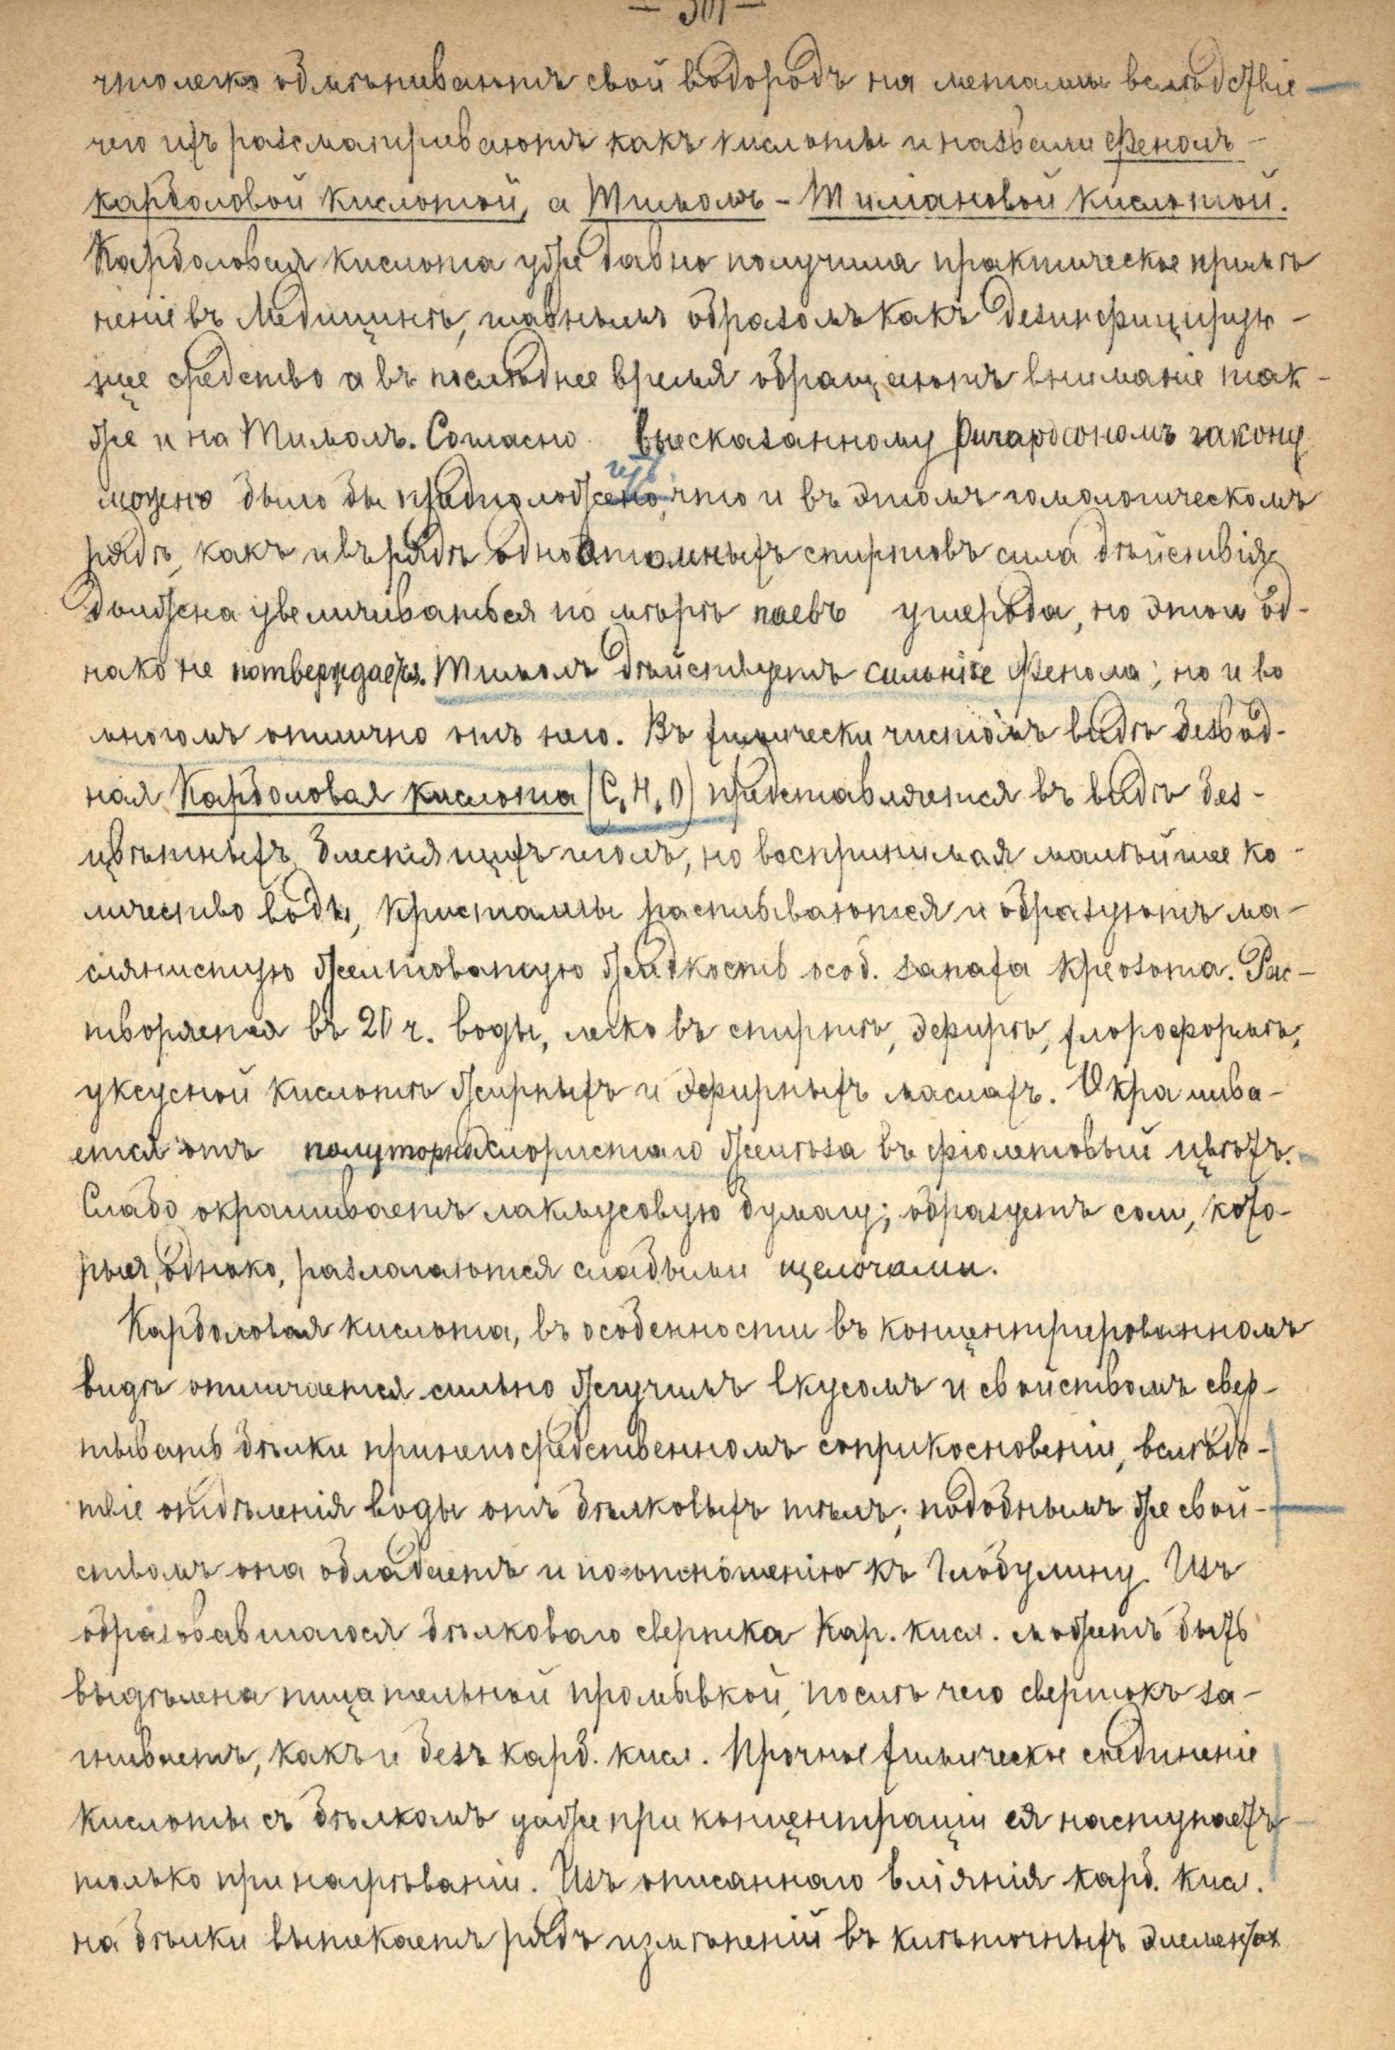 — 301 —
что легко обмѣниваютъ свой водородъ на металлы вслѣдствіе
чего ихъ разсматриваютъ какъ кислоты и назвали Фенолъ -
карболовой кислотой, а Тимолъ - Тиміановой кислотой.
Карболовая кислота уже давно получила практическое примѣ
неніе въ Медицинѣ, главнымъ образомъ какъ дезинфицирую -
щее средство а въ послѣднее время обращаютъ вниманіе так -
же и на Тимолъ. Согласно высказанному Ричардсономъ закону
можно было бы предположено, что и въ этомъ гомологическомъ
рядѣ, какъ и въ рядѣ одноатомныхъ спиртовъ сила дѣйствія
должна увеличиваться по мѣрѣ паевъ углерода, но этого од-
нако не потверждается. Тимолъ дѣйствуетъ сильнѣе Фенола; но и во
многомъ отлично отъ него. Въ химически чистомъ видѣ безвод-
ная Карболовая кислота (C, H, O) представляется въ видѣ без -
цвѣтныхъ блестящихъ иголъ, но воспринимая малѣйшее ко -
личество воды, кристаллы расплываются и образуютъ ма -
слянистую желтоватую жидкость особ. запаха креозота. Рас -
творяется въ 20 ч. воды, легко въ спиртѣ, эфирѣ, хлороформѣ,
уксусной кислотѣ жирныхъ и эфирныхъ маслахъ. Окрашива -
ется отъ полуторнахлористаго желѣза въ фіолетовый цвѣтъ.
Слабо окрашиваетъ лакмусовую бумагу; образуетъ соли, кото-
рыя, однако, разлагаются слабыми щелочами.
Карболовая кислота, въ особенности въ концентрированномъ
видѣ отличается сильно жгучимъ вкусомъ и свойствомъ свер -
тывать бѣлки при непосредственномъ соприкосновеніи, вслѣдс -
твіе отдѣленія воды отъ бѣлковыхъ тѣлъ; подобнымъ же свой -
ствомъ она обладаетъ и по отношенію къ Глобулину. Изъ
образовавшагося бѣлковаго свертка Кар. кисл. можетъ быть
выдѣлена тщательной промывкой, послѣ чего свертокъ за -
гниваетъ, какъ и безъ карб. кисл. Прочное химическое соединеніе
кислоты съ бѣлкомъ удобже при концентраціи ея наступаетъ
только при нагрѣваніи. Изъ описаннаго вліянія карб. кисл.
на бѣлки вытекаетъ рядъ измѣненій въ клѣточныхъ элементах